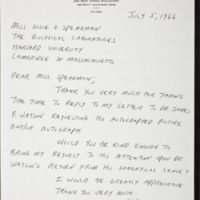 JULY 5, 1966
MISS. SUSIE A. SPEAKMAN
THE BIOLOGICAL LABORATORIES
HARVARD UNIVERSITY
CAMBRIDGE 38 MASSACHUSETTS
DEAR MISS. SPEAKMAN;
THANK YOU VERY MUCH FOR TAKING
THE TIME TO REPLY TO MY LETTER TO DR JAMES
D. WATSON REQUESTING HIS AUTOGRAPHED PICTURE
AND/OR AUTOGRAPH
WOULD YOU BE KIND ENOUGH TO
BRING MY REQUEST TO HIS ATTENTION UPON DR
WATSON'S RETURN FROM HIS SABBATICAL LEAVE?
I WOULD BE GREATLY APPRECIATIVE
THANK YOU VERY MUCH